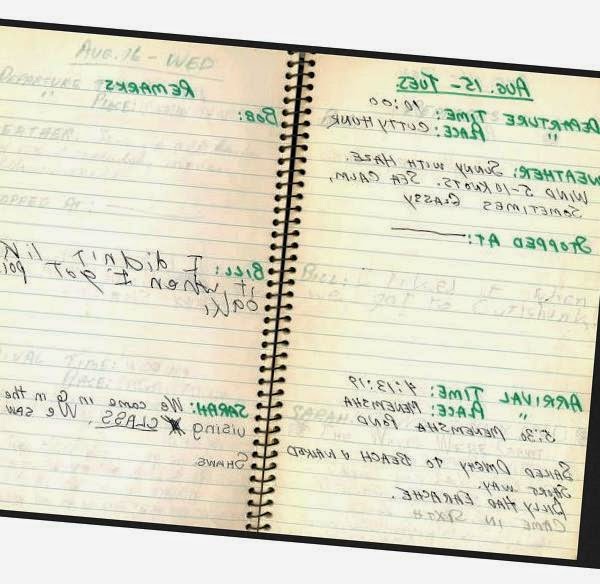 AUG. 15 - TUES
DEPARTURE TIME: 10:00
" PLACE: CUTTYHUNK
WEATHER: SUNNY WITH HAZE.
WIND 5-10 KNOTS. SEA CALM,
SOMETIMES GLASSY
STOPPED AT:
ARRIVAL TIME: 4:13:19
" PLACE: MENEMSHA
5:30 MENEMSHA POND
SAILED TO BEACH & WALKED
SHORT WAY.
BILLY HAD EARACHE.
CAME IN SIXTH
REMARKS
BOB:
BILL: I didn't lik
it when I got poi
oak,
SARAH: We came in 6 in the
uising CLASS. We saw
AUG. 16 - WED